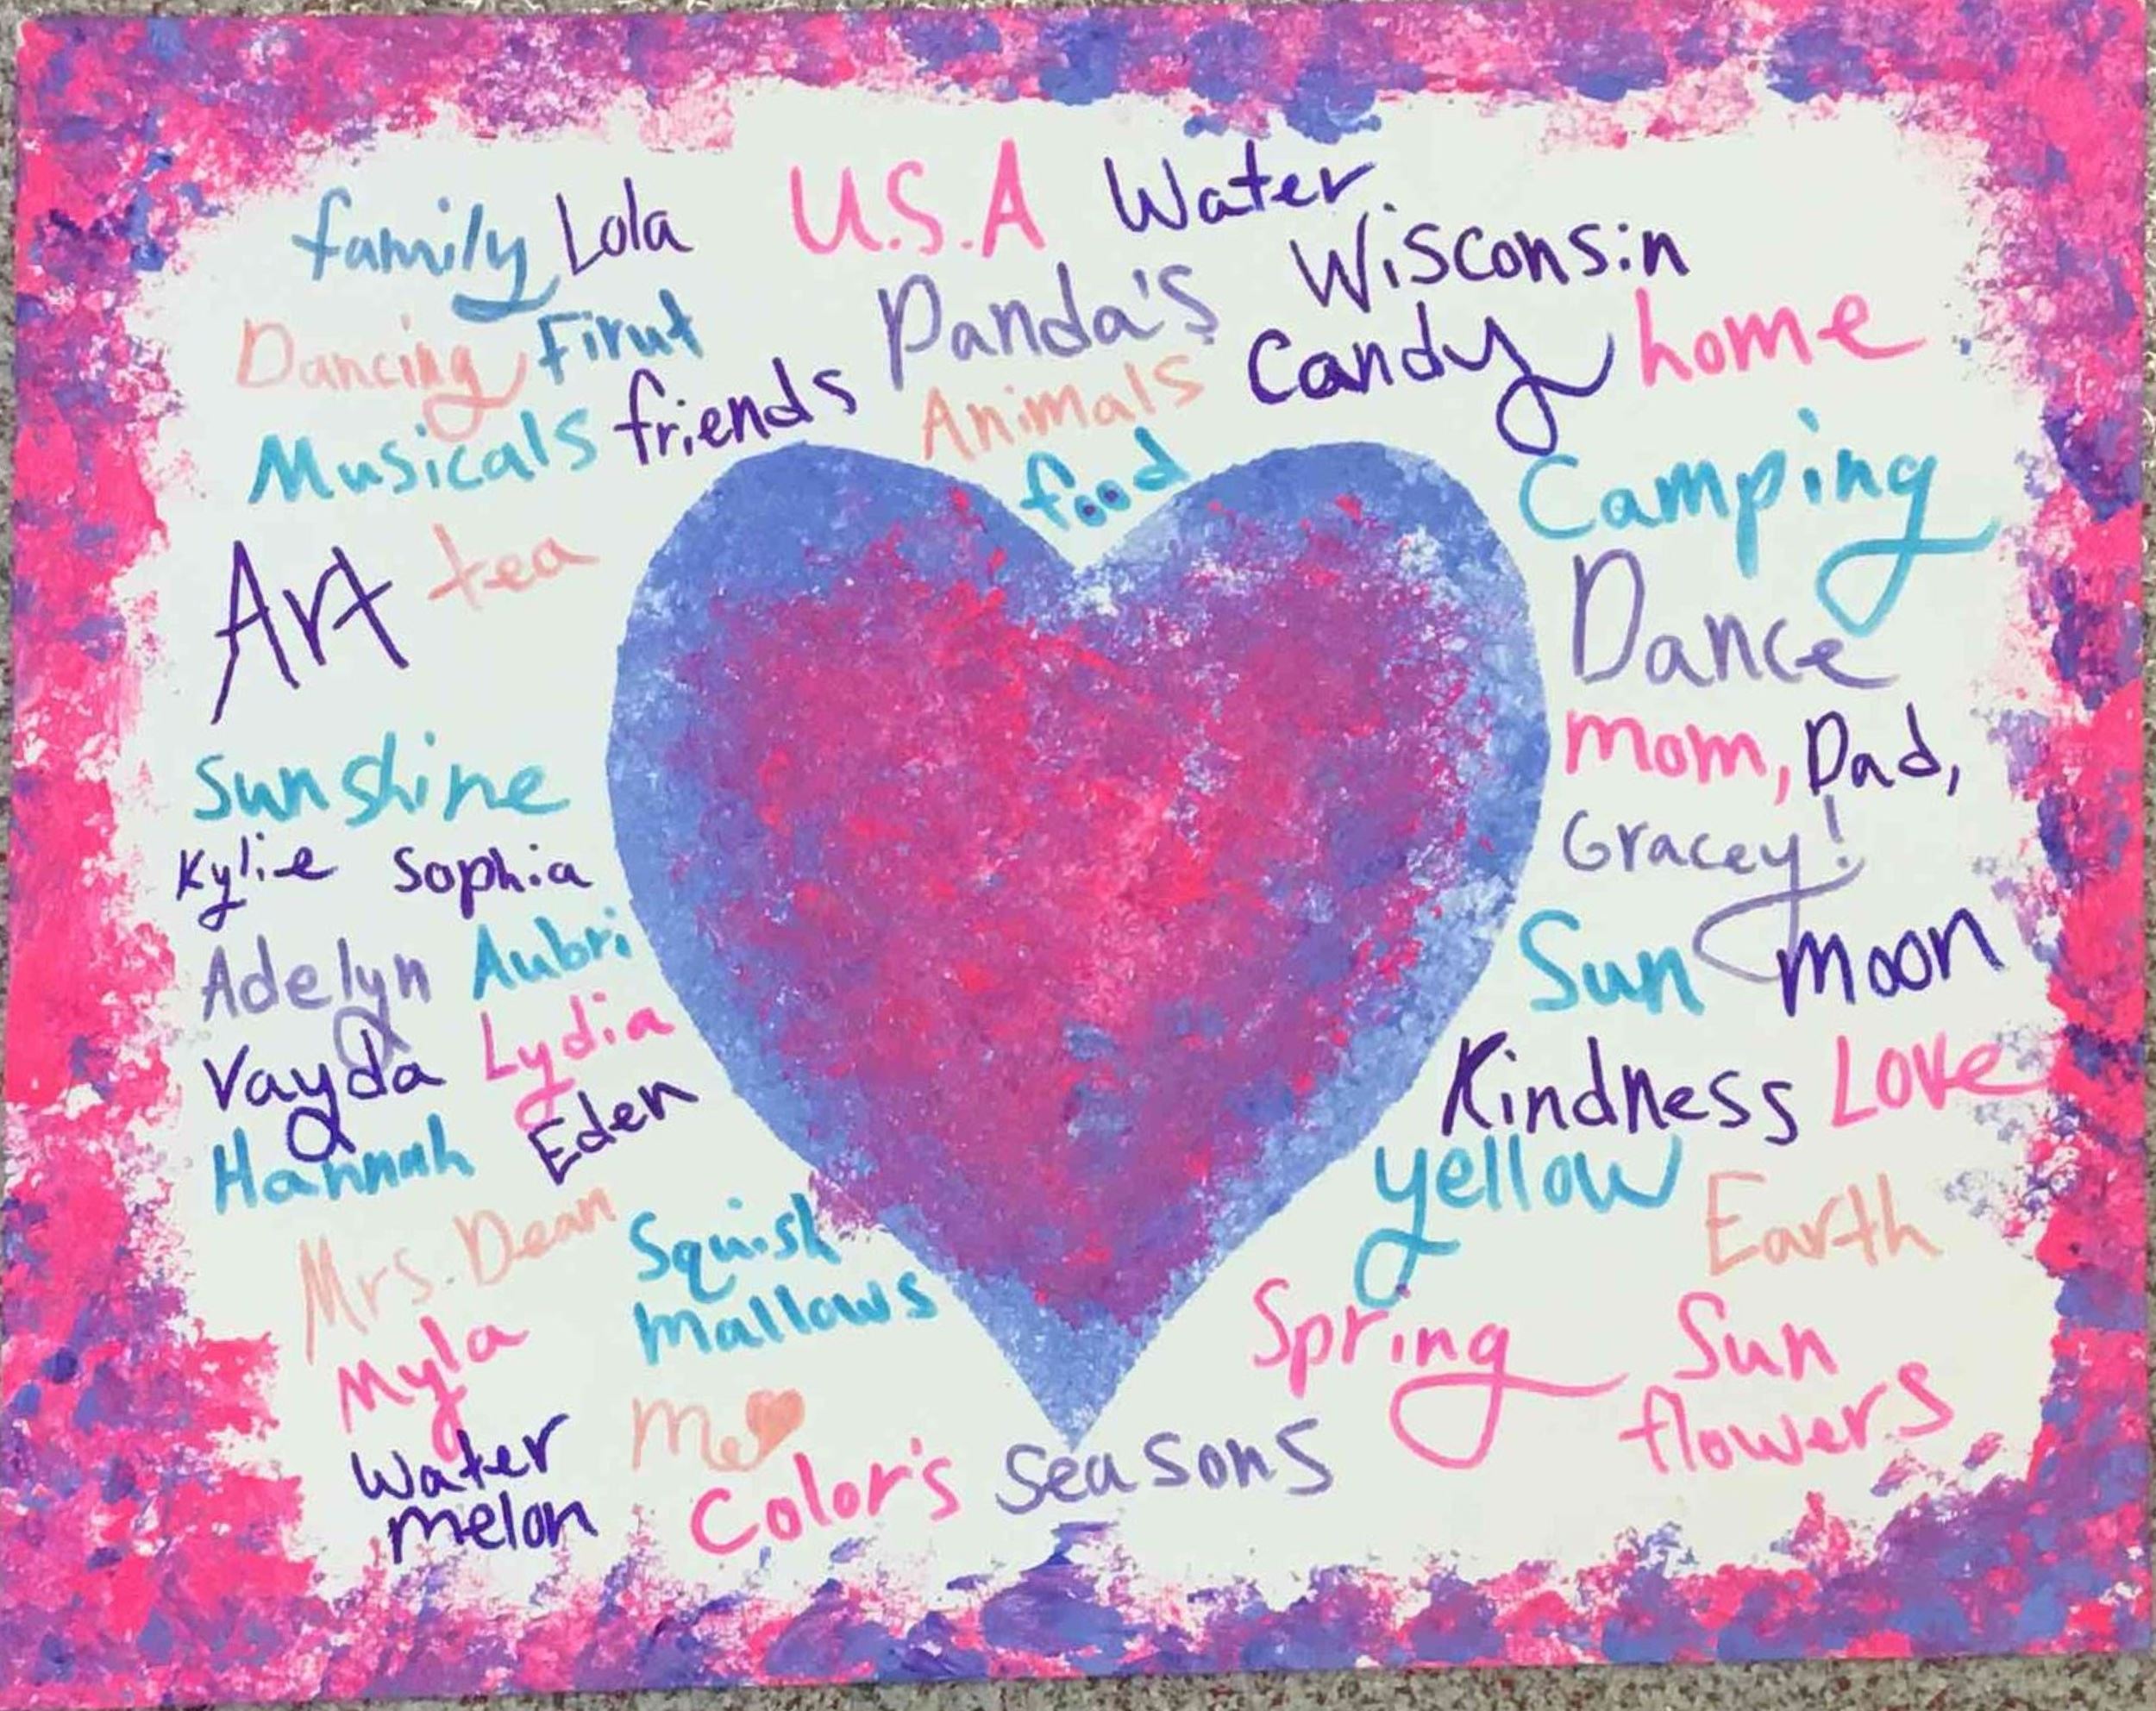 family Lola U.S.A Water
Wisconsin
Dancing Firut Panda's Candy home
Musicals friends Animals
food Camping
Art tea
Dance
Sunshine mom, Dad,
Kylie Sophia Gracey!
Adelyn Aubri Sun moon
Vayda Lydia Kindness Love
Hannah Eden yellow
Mrs. Dean Squish Earth
mallows
Myla Spring Sun
flowers
Water me
melon Color's seasons